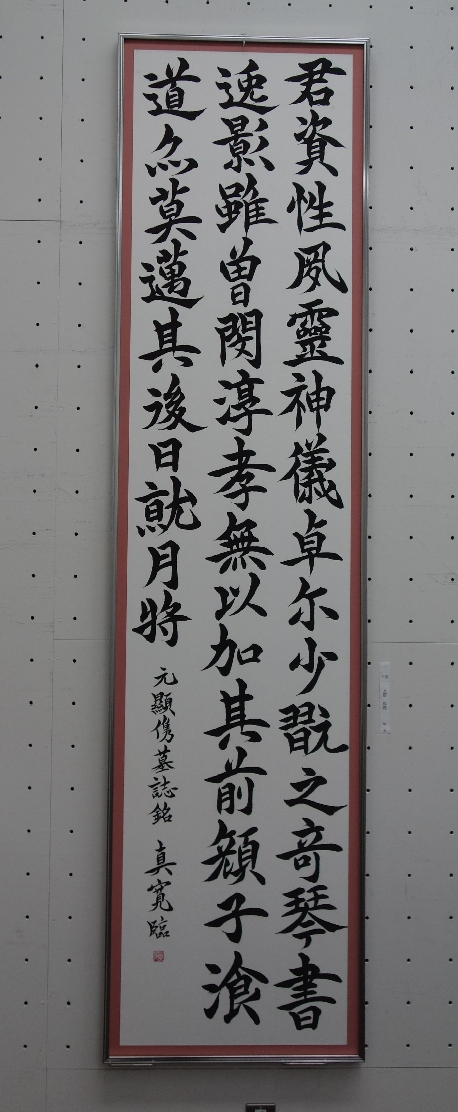 君資性夙靈神儀卓尓少翫之奇琴書
逸影雖曽閔淳孝無以加其前顔子湌
道亦莫邁其後日就月將
元顯儁墓誌銘 真寛臨